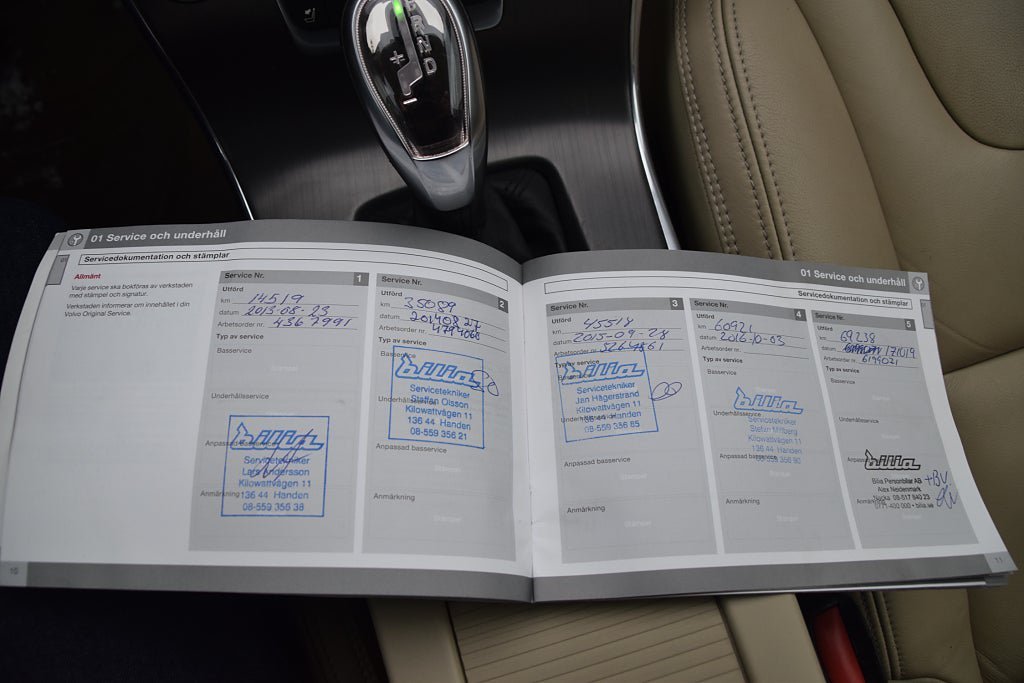 01 Service och underhåll
Servicedokumentation och stämplar
Allmänt
Varje service ska bokföras av verkstaden
med stämpel och signatur.
Verkstaden informerar om innehållet i din
Volvo Original Service.
Service Nr. 1
Utförd
km 14519
datum 2013-08-23
Arbetsorder nr. 4367991
Typ av service
Basservice
Stämpel
Underhållsservice
bilia
Anpassad basservice
Servicetekniker
Lars Andersson
Kilowattvägen 11
Anmärkning 136 44 Handen
08-559 356 38
Service Nr. 2
Utförd
km 35089
datum 20140827
Arbetsorder nr. 4794068
Typ av service
Basservice
bilia
Servicetekniker
Staffan Olsson
Underhållsservice
Kilowattvägen 11
136 44 Handen
08-559 356 21
Anpassad basservice
Anmärkning
Stämpel
Service Nr. 3
Utförd
km 45518
datum 2015-09-28
Arbetsorder nr. 5264861
Typ av service
Basservice
bilia
Servicetekniker
Jan Hägerstrand
Underhållsservice
Kilowattvägen 11
136 44 Handen
08-559 356 85
Anpassad basservice
Anmärkning
Stämpel
01 Service och underhåll
Servicedokumentation och stämplar
Service Nr. 4
Utförd
km 60921
datum 2016-10-03
Arbetsorder nr.
Typ av service
Basservice
bilia
Underhållsservice
Servicetekniker
Stefan
Kilowattvägen 11
136 44 Handen
Anpassad basservice
08-559 356 90
Anmärkning
Stämpel
Service Nr. 5
Utförd
km 69238
datum 171019
Arbetsorder nr. 6199021
Typ av service
Basservice
Underhållsservice
Anpassad basservice
bilia
Bilia Personbilar AB
Alex Neidenmark
Nacka 08-517 840 23
Anmärkning 0771-400 000 • bilia.se
+BV
Stämpel
10
11